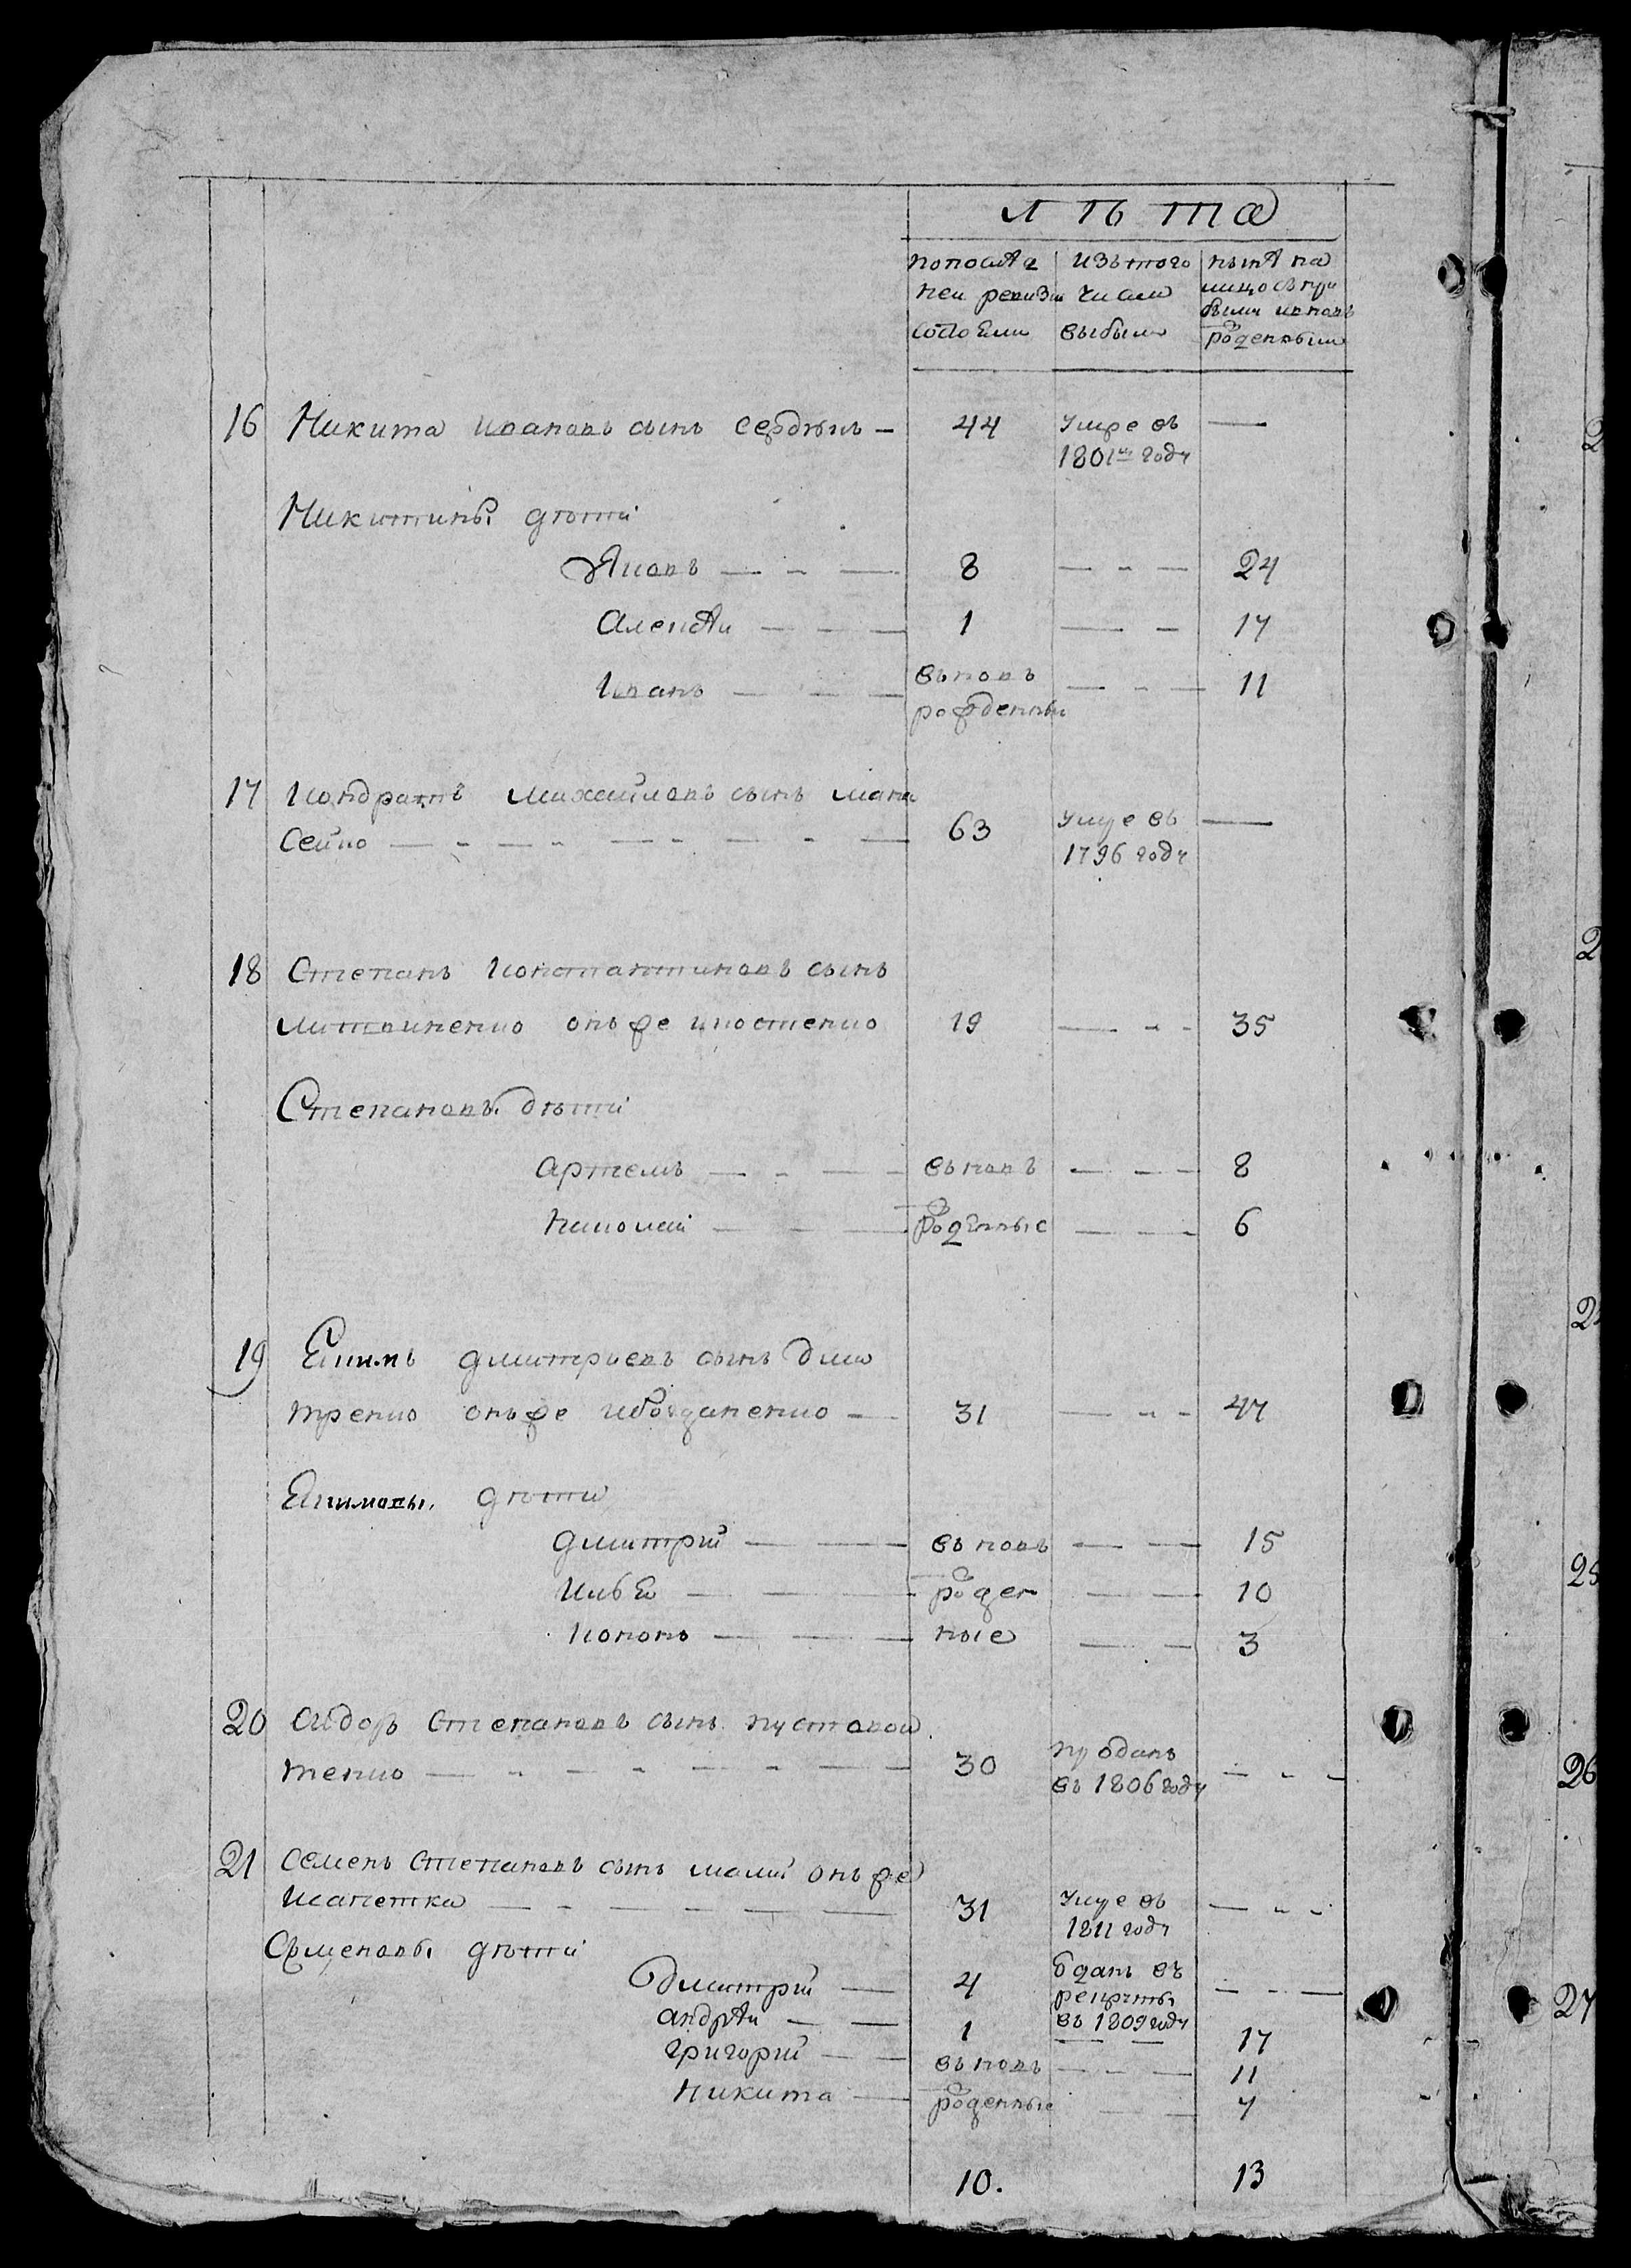 лѣта
по послѣд | изъ того | нынѣ на
ней ревизіи | числа | лицо съ при
состояли | выбыло | были и вновь
рожденными
16 Никита Ивановъ сынъ — 44 умре въ —
1801мъ году
Никитины дѣти
Яковъ — 8 — 24
Алексѣй — 1 — 17
Иванъ — вновь — 11
рожденный
17 Кондратъ Михайловъ сынъ Мана
сейко — 63 умре въ —
1796 году
18 Степанъ Константиновъ сынъ
Литвиненко онъ же и Костенко 19 — 35
Степановы дѣти
Артемъ — вновь — 8
Николай — рожденные — 6
19 Екимъ Дмитріевъ сынъ Дми
тренко онъ же и Богданенко — 31 — 47
Екимовы дѣти
Дмитрій — вновь — 15
Илья — рожден — 10
Кононъ — ные — 3
20 Сидоръ Степановъ сынъ Пустовой
тенко — 30 проданъ —
въ 1806 году
21 Семенъ Степановъ сынъ Малій онъ же
— 31 умре въ —
1811 году
Семеновы дѣти
Дмитрій — 4 отданъ въ —
рекруты
Андрѣй — 1 въ 1809 году 17
Григорій — вновь — 11
Никита — рожденные — 7
10. 13
2
2
2
25
26
27